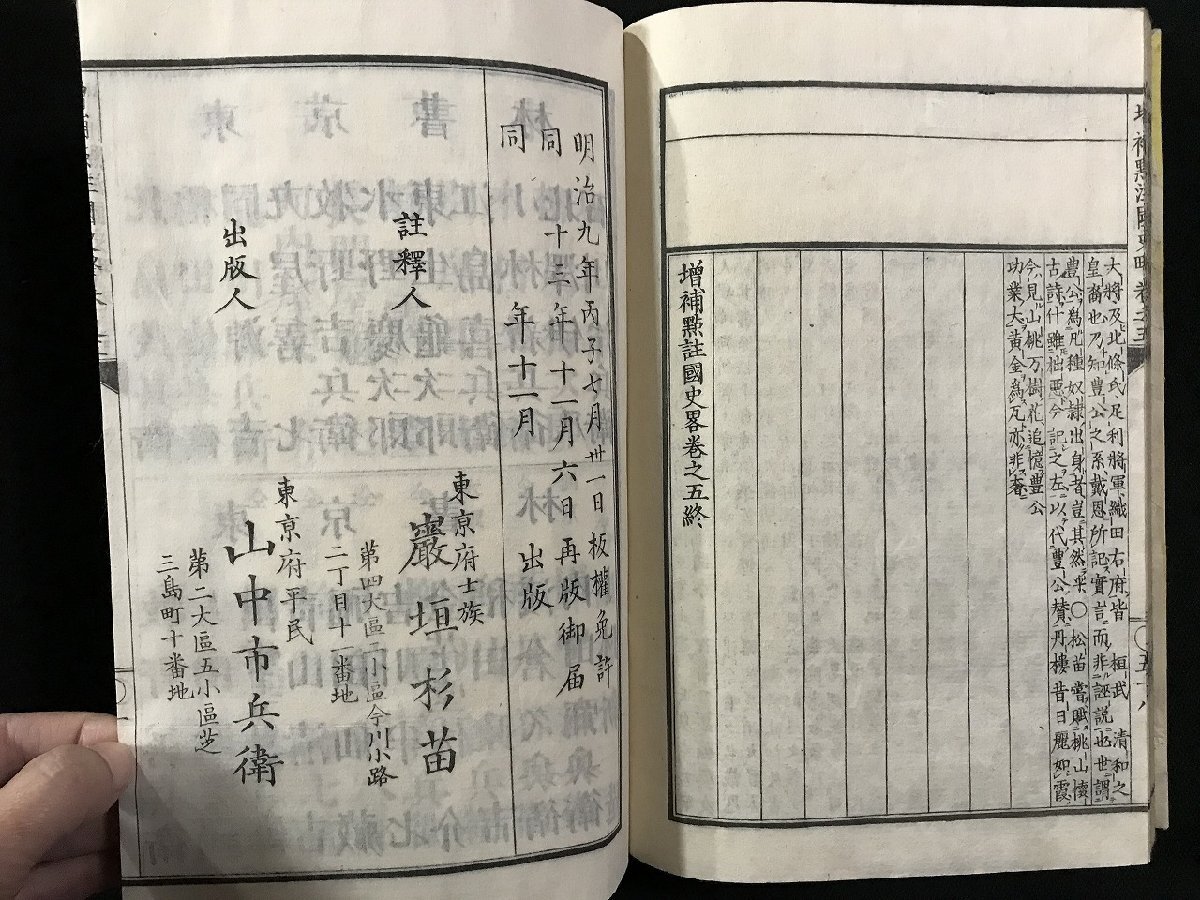 大將及北條氏足利將軍織田右府皆 桓武 清和之
皇裔也乃知豊公之系戴恩所記實言而非誣説也世謂
豊公爲凡種奴隷出身者豈其然乎〇松苗嘗賦桃山懷
古詩什雖拙惡今記之左以代豊公賛丹樓昔日麗如霞
今見山桃万樹花追憶豊公
功業大黄金爲瓦亦非奢
增補點註國史畧卷之五終
五十八
明治九年丙子七月卅一日板權免許
同 十三年十一月六日再版御届
同 年十一月 出版
註釋人
東京府士族
巖垣杉苗
第四大區一小區今川小路
二丁目十一番地
出版人
東京府平民
山中市兵衞
第二大區五小區芝
三島町十番地